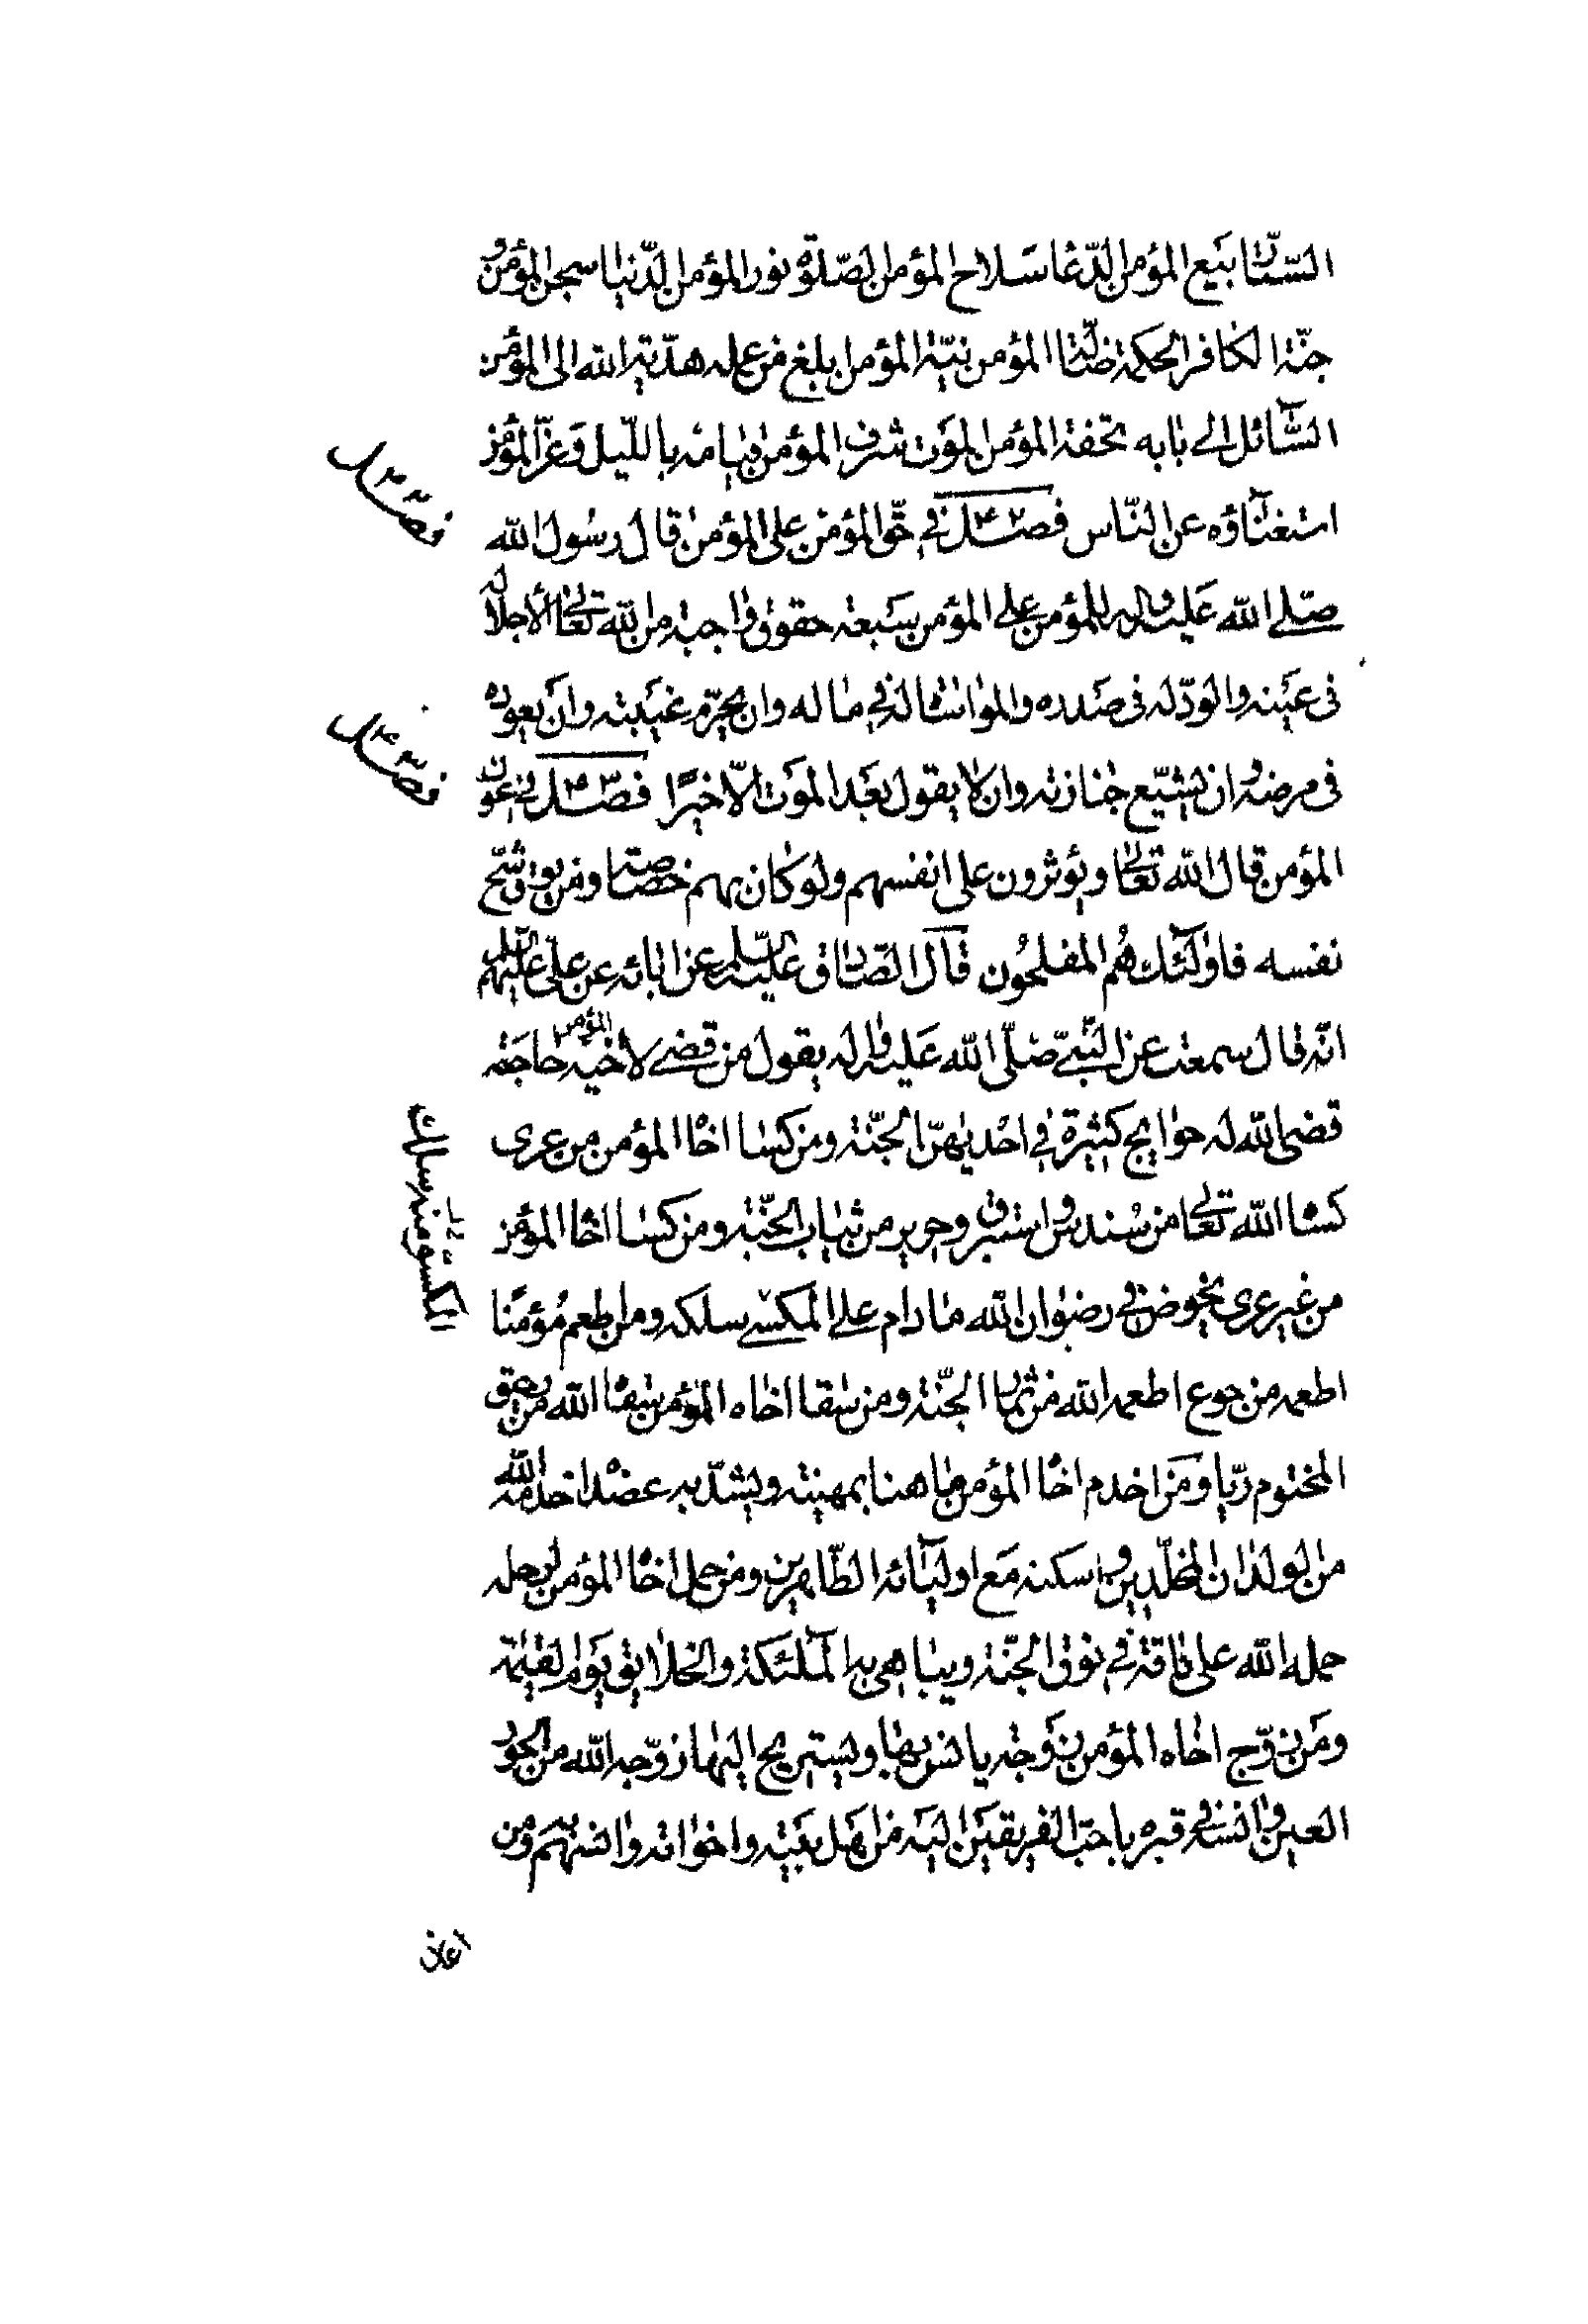 الشتاء ربيع المؤمن الدعا سلاح المؤمن الصّلوة نور المؤمن الدّنيا سجن المؤمن و
جنّة الكافر الحكمة ضالّة المؤمن نيّة المؤمن ابلغ من عمله هديّة الله الى المؤمن
السّائل الى بابه تحفة المؤمن الموت شرف المؤمن قيامه باللّيل و عزّ المؤمن
استغناؤه عن النّاس فصل ۴۲ في حقّ المؤمن على المؤمن قال رسول الله
صلّى الله عليه واله للمؤمن على المؤمن سبعة حقوق واجبة من الله تعالى الأجلال له
فى عينه والودّ له فى صدره والمواساة له في ماله وان يحرّم غيبته وان يعوده
فى مرضه و ان يشيّع جنازته وان لا يقول بعد الموت الّا خيرًا فصل ۴۳ في عون
المؤمن قال الله تعالى ويؤثرون على انفسهم ولو كان بهم خصاصة ومن يوق شحّ
نفسه فاولئك هُم المفلحُون قال الصّادق عليه السلم عن ابائه عن على عليهم السلم
انّه قال سمعت عن النّبيّ صلّى الله عليه واله يقول من قضى لاخيه المؤمن حاجة
قضى الله له حوايج كثيرة في احديهنّ الجنّة ومن كسا اخاه المؤمن من عرى
كساه الله تعالى من سُندس و استبرق وحرير من ثياب الجنّة ومن كسا اخاه المؤمن
من غير عرى يخوض في رضوان الله ما دام على المكسى سلكه ومن اطعم مُؤمنًا
اطعمه من جوع اطعمه الله من ثمار الجنّة ومن سقا اخاه المؤمن سقاه الله من رحيق
المختوم ريّا ومن اخدم اخاه المؤمن بمهنته ويشدّ به عضده اخدمه الله
من الولدان المخلّدين و اسكنه مع اوليائه الطّاهرين ومن حمل اخاه المؤمن رحله
حمله الله على ناقة في نوق الجنّة ويباهى به الملئكة والخلايق يوم القيمة
ومن زوّج اخاه المؤمن زوجة يانس بها ويستريح اليها زوّجه الله من الحور
العين وانسه في قبره باحبّ الفريقين اليه من اهل بيته واخوانه وانسهم و من
فصل ۴۲
فصل ۴۳
المكسو منه سلك
اعان